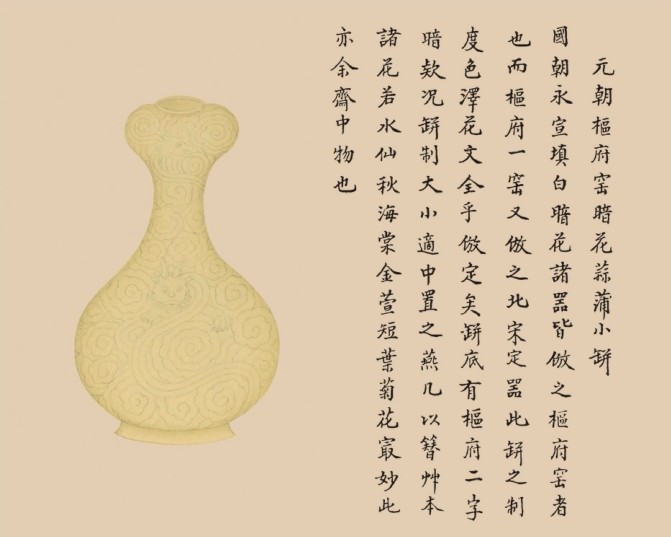 元朝樞府窑暗花蒜蒲小缾
國朝永宣填白暗花諸器皆倣之樞府窑者
也而樞府一窑又倣之北宋定器此缾之制
度色澤花文全乎倣定矣缾底有樞府二字
暗欵况缾制大小適中置之燕几以簪艸本
諸花若水仙秋海棠金萱短葉菊花㝡妙此
亦余齋中物也